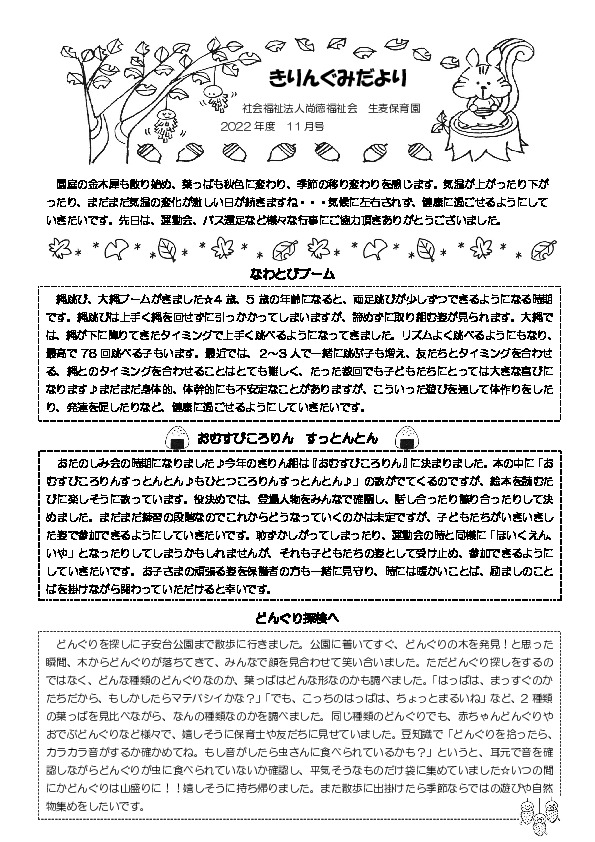 きりんぐみだより
社会福祉法人尚徳福祉会　生麦保育園
2022年度　11月号
園庭の金木犀も散り始め、葉っぱも秋色に変わり、季節の移り変わりを感じます。気温が上がったり下が
ったり、まだまだ気温の変化が激しい日が続きますね・・・気候に左右されず、健康に過ごせるようにして
いきたいです。先日は、運動会、バス遠足など様々な行事にご協力頂きありがとうございました。
なわとびブーム
縄跳び、大縄ブームがきました☆4歳、5歳の年齢になると、両足跳びが少しずつできるようになる時期
です。縄跳びは上手く縄を回せずに引っかかってしまいますが、諦めずに取り組む姿が見られます。大縄で
は、縄が下に降りてきたタイミングで上手く跳べるようになってきました。リズムよく跳べるようにもなり、
最高で78回跳べる子もいます。最近では、2～3人で一緒に跳ぶ子も増え、友だちとタイミングを合わせ
る、縄とのタイミングを合わせることはとても難しく、たった数回でも子どもたちにとっては大きな喜びに
なります♪まだまだ身体的、体幹的にも不安定なことがありますが、こういった遊びを通して体作りをした
り、発達を促したりなど、健康に過ごせるようにしていきたいです。
おむすびころりん　すっとんとん
おたのしみ会の時期になりました♪今年のきりん組は『おむすびころりん』に決まりました。本の中に「お
むすびころりんすっとんとん♪もひとつころりんすっとんとん♪」の歌がでてくるのですが、絵本を読むた
びに楽しそうに歌っています。役決めでは、登場人物をみんなで確認し、話し合ったり譲り合ったりして決
めました。まだまだ練習の段階なのでこれからどうなっていくのかは未定ですが、子どもたちがいきいきし
た姿で参加できるようにしていきたいです。恥ずかしがってしまったり、運動会の時と同様に「ほいくえん、
いや」となったりしてしまうかもしれませんが、それも子どもたちの姿として受け止め、参加できるように
していきたいです。お子さまの頑張る姿を保護者の方も一緒に見守り、時には暖かいことば、励ましのこと
ばを掛けながら関わっていただけると幸いです。
どんぐり探検へ
どんぐりを探しに子安台公園まで散歩に行きました。公園に着いてすぐ、どんぐりの木を発見！と思った
瞬間、木からどんぐりが落ちてきて、みんなで顔を見合わせて笑い合いました。ただどんぐり探しをするの
ではなく、どんな種類のどんぐりなのか、葉っぱはどんな形なのかも調べました。「はっぱは、まっすぐのか
たちだから、もしかしたらマテバシイかな？」「でも、こっちのはっぱは、ちょっとまるいね」など、2種類
の葉っぱを見比べながら、なんの種類なのかを調べました。同じ種類のどんぐりでも、赤ちゃんどんぐりや
おでぶどんぐりなど様々で、嬉しそうに保育士や友だちに見せていました。豆知識で「どんぐりを拾ったら、
カラカラ音がするか確かめてね。もし音がしたら虫さんに食べられているかも？」というと、耳元で音を確
認しながらどんぐりが虫に食べられていないか確認し、平気そうなものだけ袋に集めていました☆いつの間
にかどんぐりは山盛りに！！嬉しそうに持ち帰りました。また散歩に出掛けたら季節ならではの遊びや自然
物集めをしたいです。